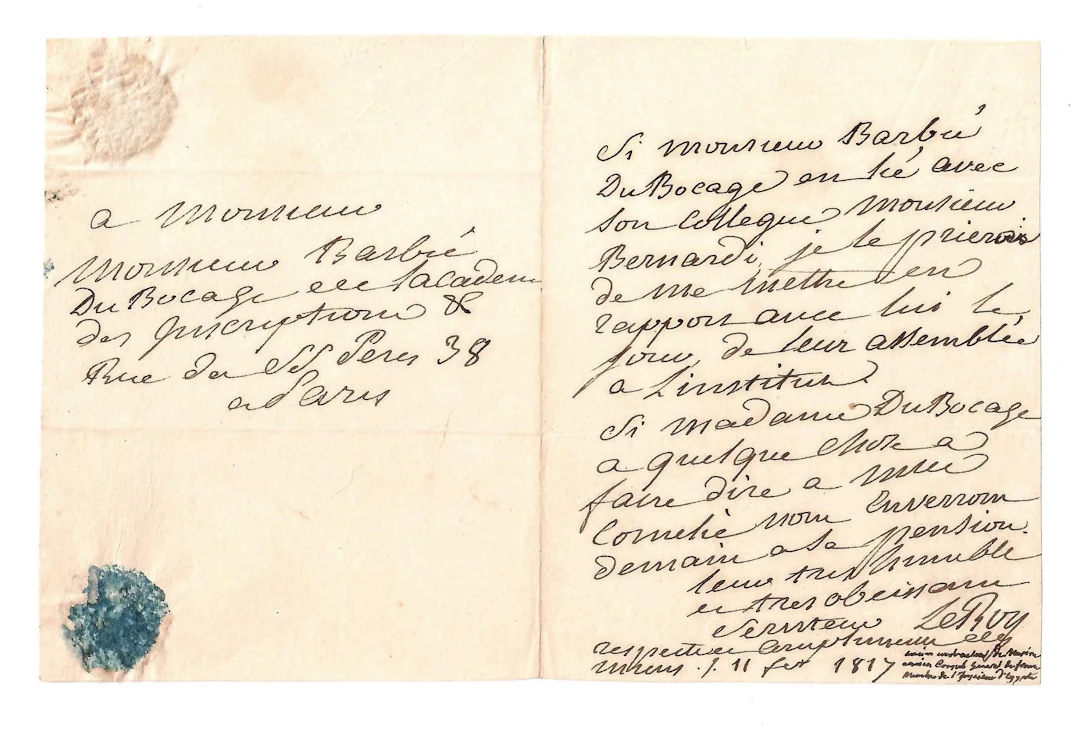 a Monsieur
Monsieur Barbié
DuBocage de lacadem
des Inscriptions &
Rue des SS Peres 38
a Paris
Si monsieur Barbié
DuBocage est lié avec
son Collegue Monsieur
Bernardi, je le prierois
de me mettre en
rapport avec lui le
jour de leur assemblée
a Linstitut.
Si madame DuBocage
a quelque chose a
faire dire a
Cornelie nous Enverrons
demain a sa pension.
leur tres humble
et tres obeissant
Serviteur LeRoy
respect et Compliment
11 fev 1817
ancien de Marine
ancien Consul General de france
Membre de l'Institut d'Egypte